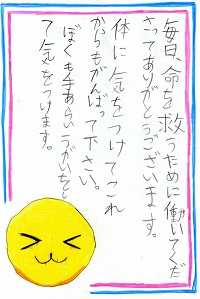 毎日、命を救うために働いてくだ
さってありがとうございます。
体に気をつけてこれ
からもがんばって下さい。
ぼくも手あらいうがいをし
て気をつけます。